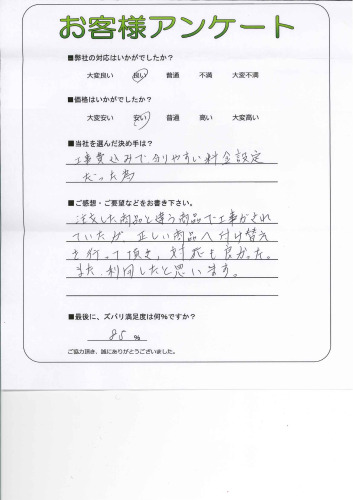 お客様アンケート
■弊社の対応はいかがでしたか?
大変良い 良い 普通 不満 大変不満
■価格はいかがでしたか?
大変安い 安い 普通 高い 大変高い
■当社を選んだ決め手は?
工事費込みで分りやすい料金設定
だった為
■ご感想・ご要望などをお書き下さい。
注文した商品と違う商品で工事がされ
ていたが、正しい商品へ付け替え
を行って頂き、対応も良かった。
また、利用したと思います。
■最後に、ズバリ満足度は何%ですか?
85 %
ご協力頂き、誠にありがとうございました。